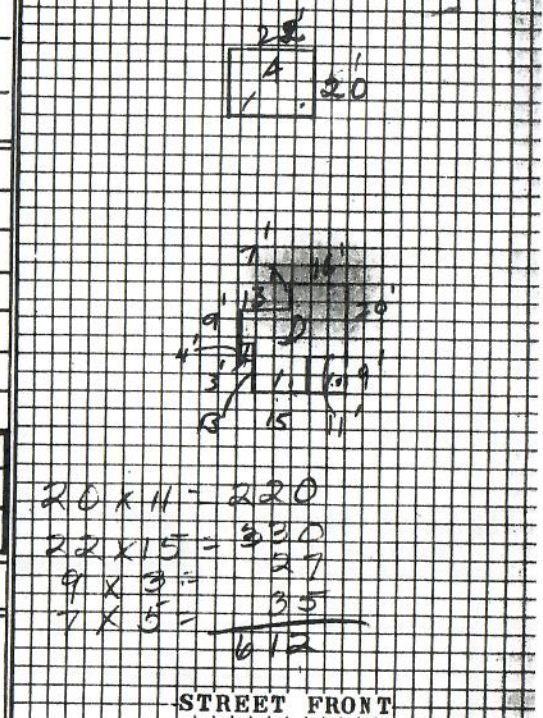 A
20'
7'
16'
13
20'
9'
D
4'
3'
9'
B
15
11'
20 x 11 = 220
22 x 15 = 330
9 x 3 = 27
7 x 5 = 35
612
STREET FRONT